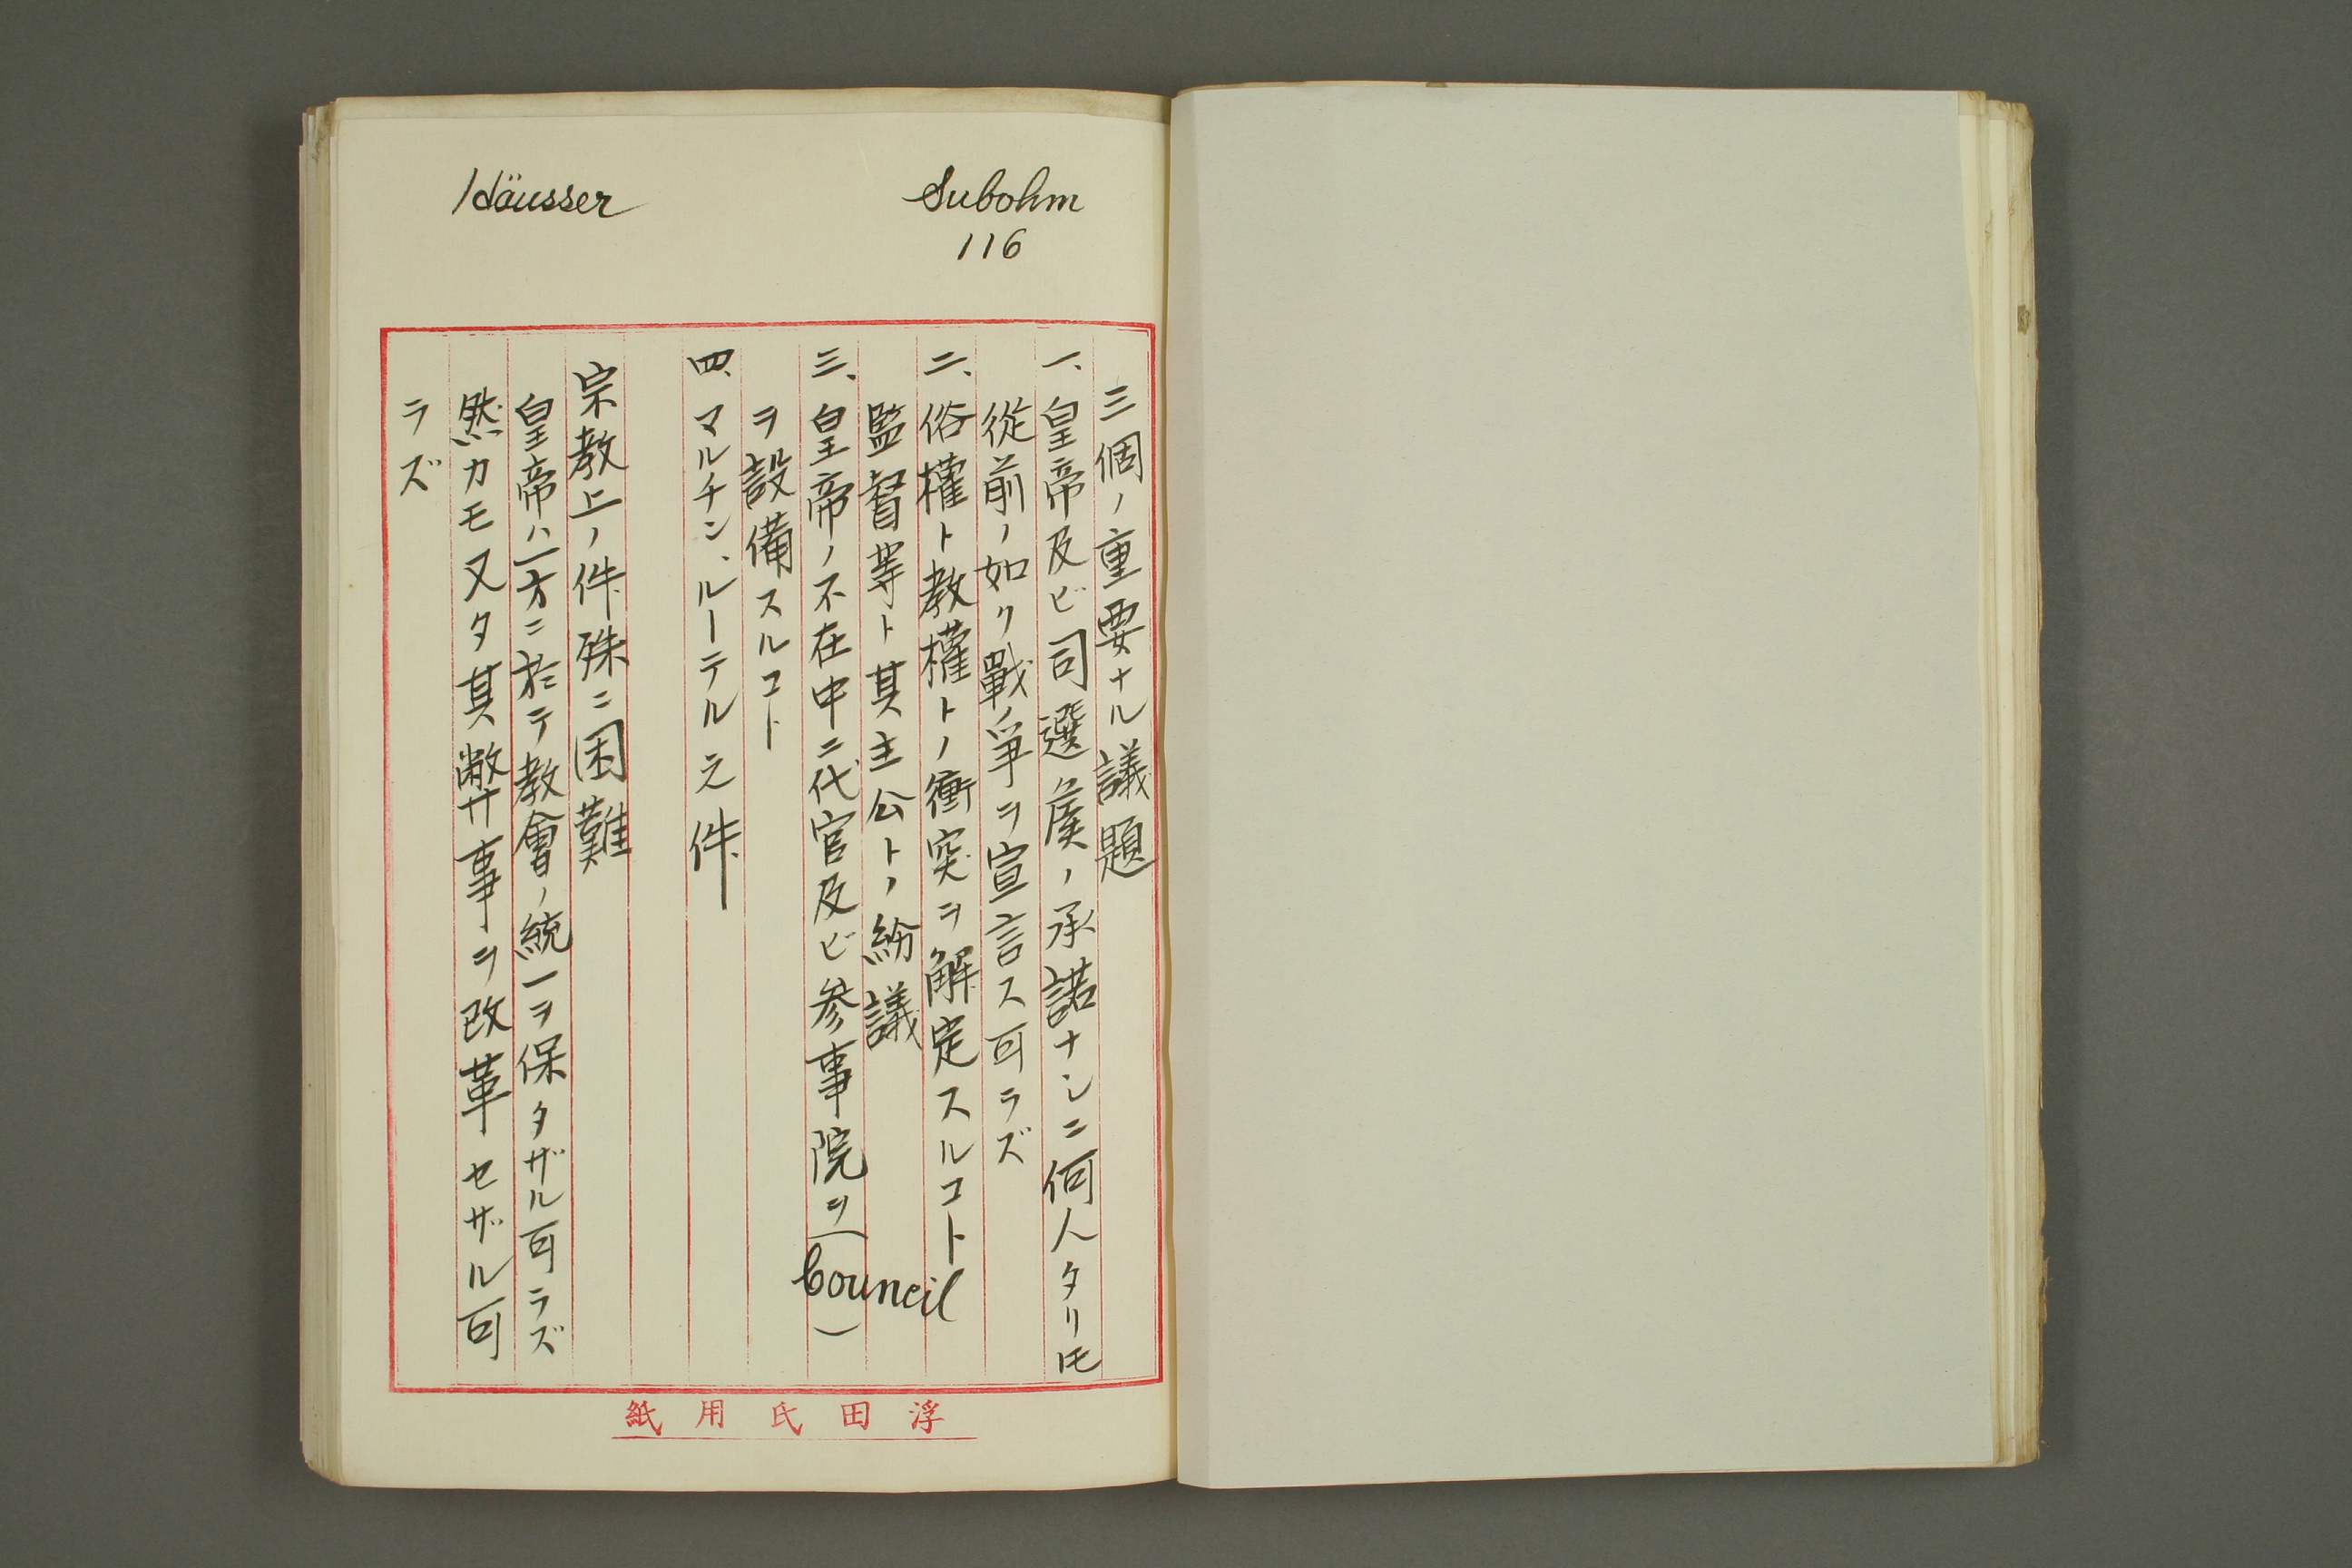 Subohm
116
Häusser
三個ノ重要ナル議題
一、皇帝及ビ司選侯ノ承諾ナシニ何人タリ𪜈
從前ノ如ク戰爭ヲ宣言ス可ラズ
二、俗權ト教權トノ衝突ヲ解定スルコト
監督等ト其主公トノ紛議
三、皇帝ノ不在中ニ代官及ビ参事院ヲ(Council)
ヲ設備スルコト
四、マルチン、ルーテル之件
宗教上ノ件殊ニ困難
皇帝ハ一方ニ於テ教會ノ統一ヲ保タザル可ラズ
然カモ又タ其弊事ヲ改革セザル可
ラズ
浮田氏用紙